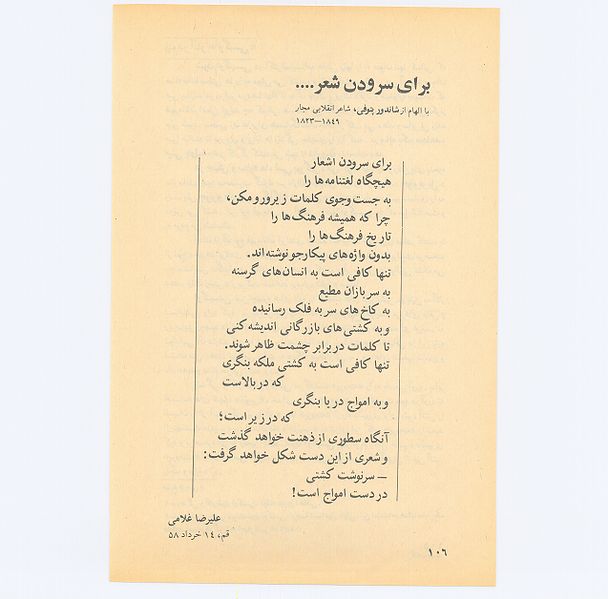 برای سرودن شعر....
با الهام از شاندور پتوفی، شاعر انقلابی مجار
۱۸۲۳—۱۸۴۹
برای سرودن اشعار
هیچگاه لغتنامه‌ها را
به جست وجوی کلمات زیرورو مکن،
چرا که همیشه فرهنگ‌ها را
تاریخ فرهنگ‌ها را
بدون واژه‌های پیکارجو نوشته‌اند.
تنها کافی است به انسان‌های گرسنه
به سربازان مطیع
به کاخ‌های سر به فلک رسانیده
و به کشتی‌های بازرگانی اندیشه کنی
تا کلمات در برابر چشمت ظاهر شوند.
تنها کافی است به کشتی ملکه بنگری
که در بالاست
و به امواج دریا بنگری
که در زیر است؛
آنگاه سطوری از ذهنت خواهد گذشت
و شعری از این دست شکل خواهد گرفت:
— سرنوشت کشتی
در دست امواج است!
علیرضا غلامی
قم، ۱۴ خرداد ۵۸
۱۰۶